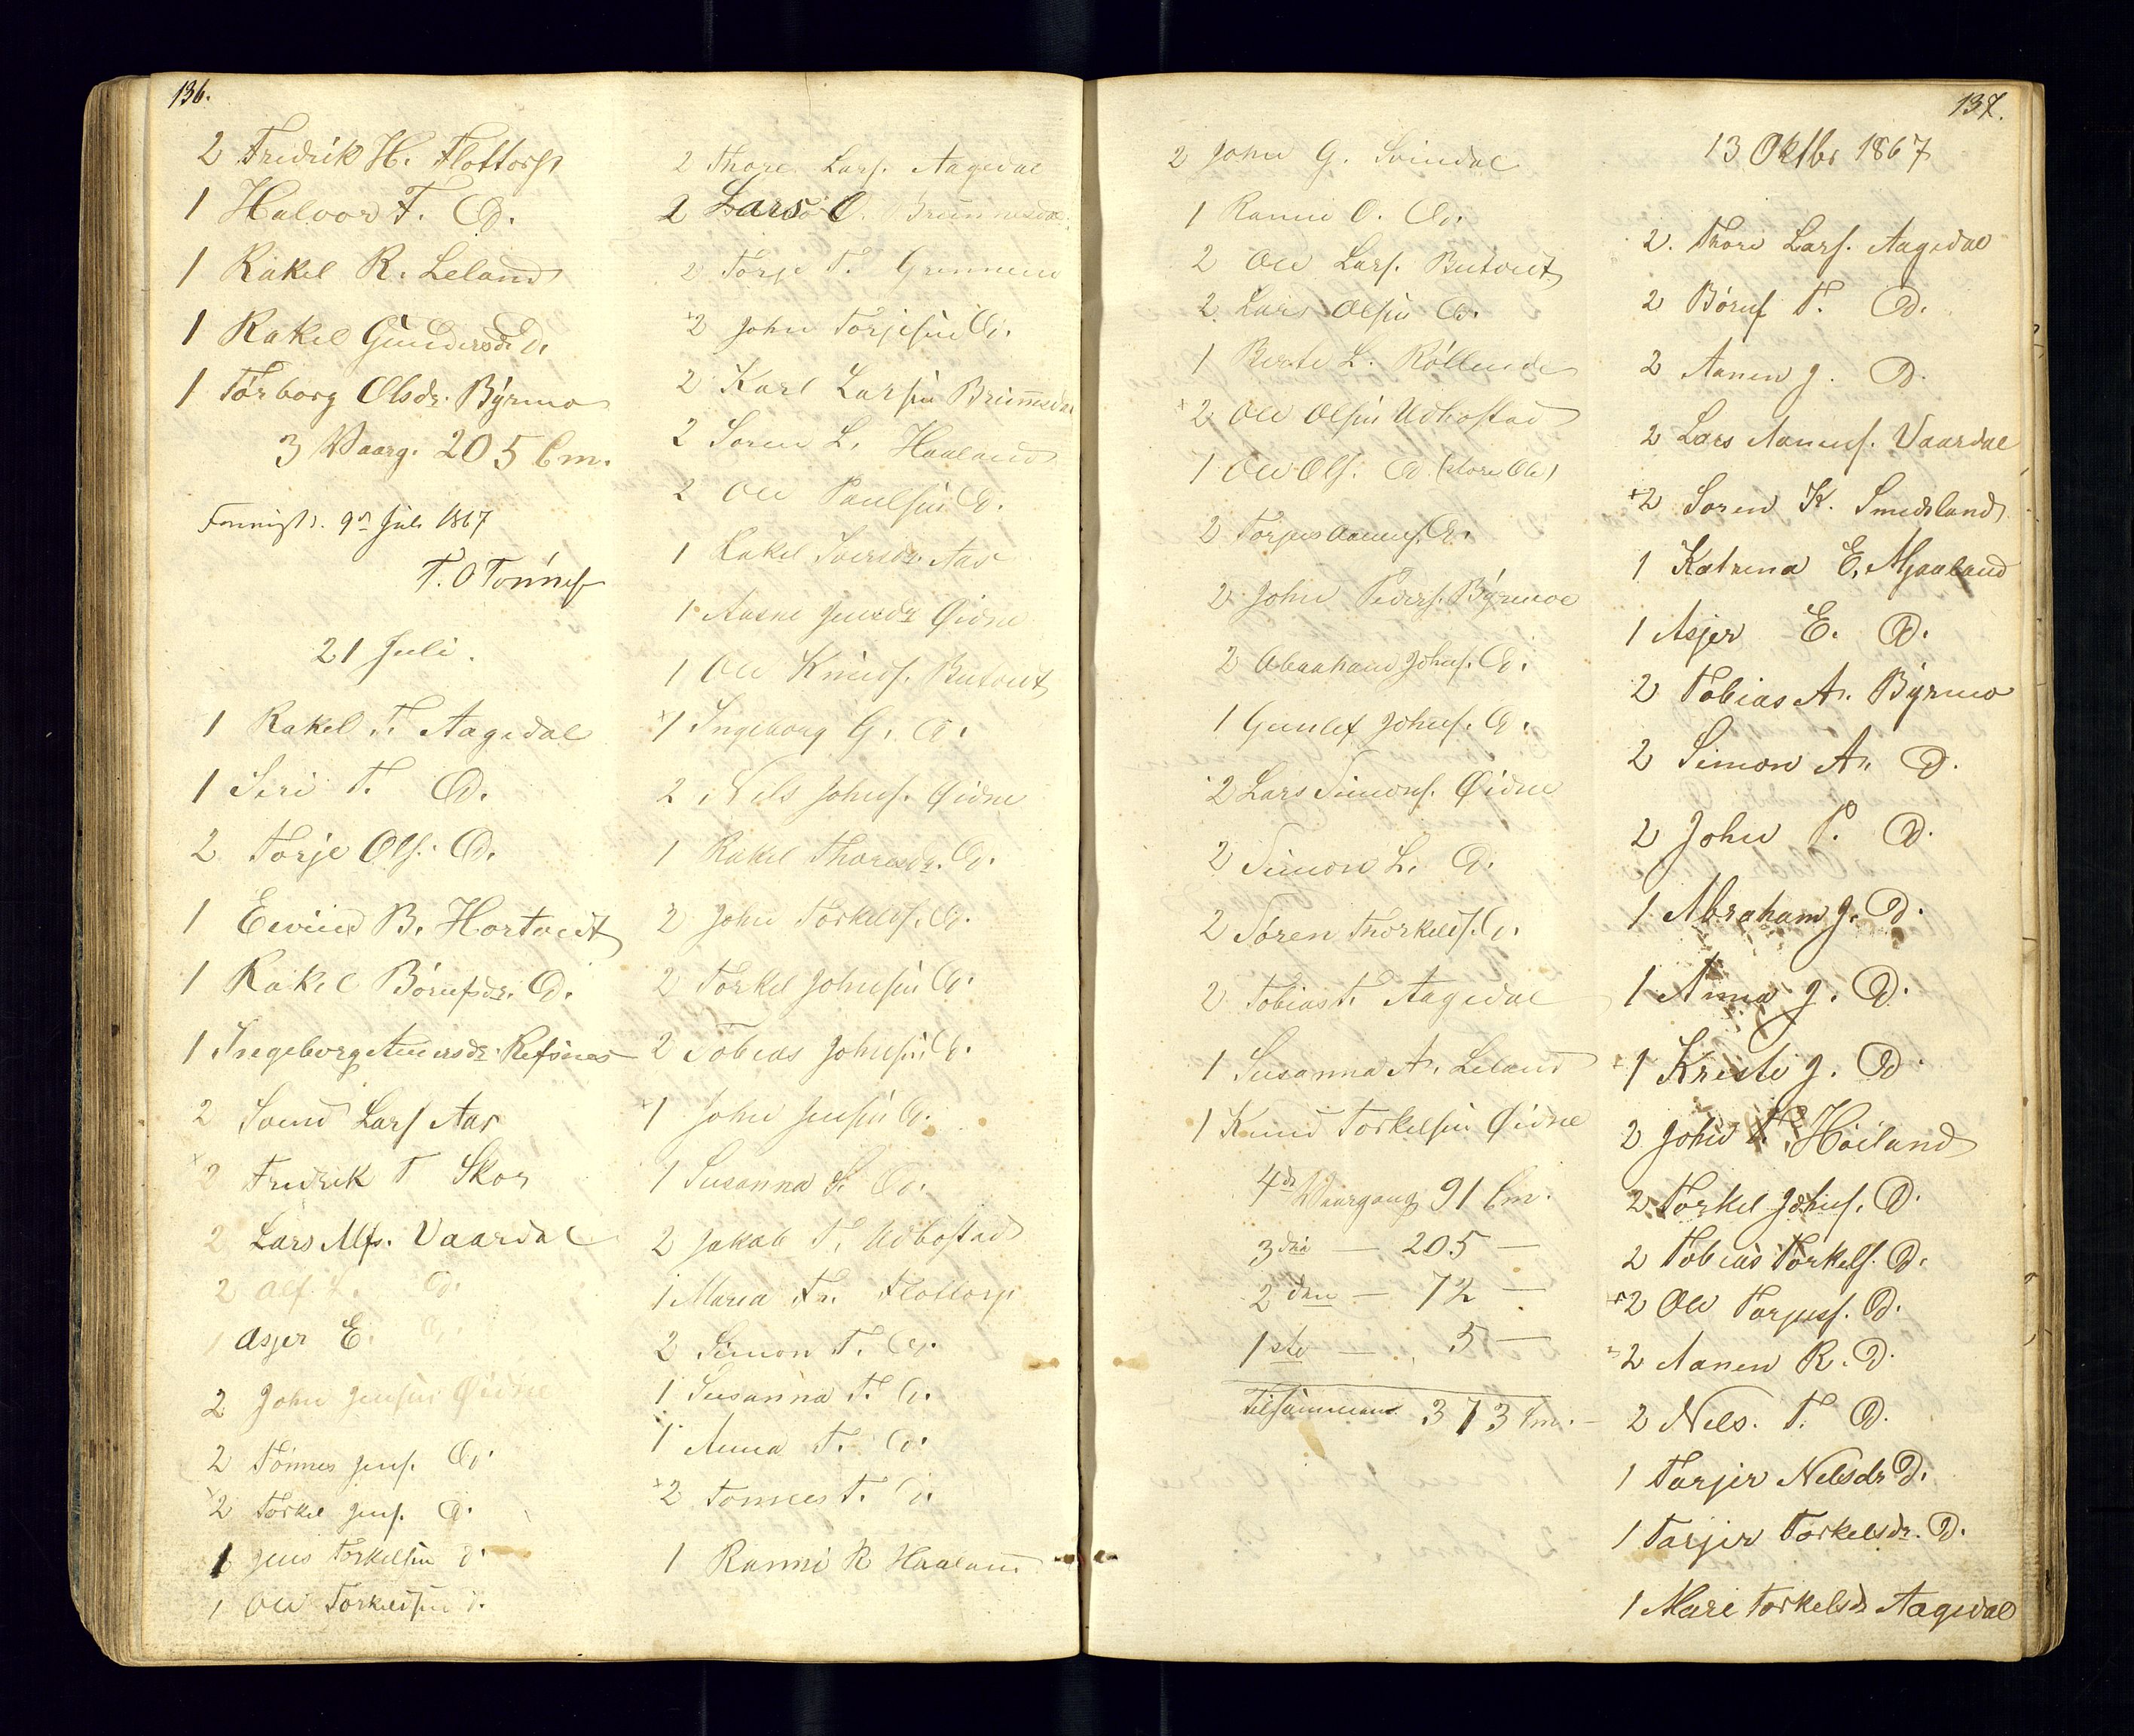 136.
2 Fredrik H. Flottorp
1 Halvor F. D.
1 Rakel R. Leland
1 Rakel Gundersd. D.
1 Torborg Olsdr. Byrmo
3 Vaarg. 205 Cm.
9de Juli 1867
T. O Tønnes
21 Juli.
1 Rakel T. Aagedal
1 Siri T. D.
2 Torje Ols. D.
1 Eevind B. Hortvedt
1 Rakel Børufsdr. D.
1 Ingeborg Anersdr. Refsnes
2 Svend Lars Aas
2 Fredrik T Skor
2 Lars Alfs. Vaardal
2 Alf L. D.
1 Asjer E. D.
2 John Jensen Øidne
2 Tønnes Jens. D.
2 Torkel Jens. D.
1 Jens Torkelsen D.
1 Ole Torkeldsen D.
2 Thore Lars. Aagedal
2 Lars O. Brunnesdal
2 Torje T.
2 John Torjesen D.
2 Karl Larsen Brunnesdal
2 Søren L. Haaland
2 Ole Paulsen D.
1 Rakel Iversdr. Aas
1 Aasne Jensdr Øidne
1 Ole Knuds. Butveit
1 Ingeborg G. D.
2 Nils Johns. Øidne
1 Rakel Thoresdr. D.
2 John Torkelds. D.
2 Torkel Johnsen D.
2 Tobias Johnsen D.
1 John Jensen D.
1 Susanna S. D.
2 Jakob T. Udbostad
1 Maria Fr. Flottorp
2 Simon T. D.
1 Susanna T. D.
1 Anna T. D.
2 Tønnes T. D.
1 Ranni R Haaland
137.
2 John G. Svindal
1 Ranni O. D.
2 Ole Lars. Butveit
2 Lars Olsen D.
1 Berte L. Røllend
2 Ole Olsen Udbostad
1 Ole Ols. D (store Ole)
2 Torjus Aanens. D.
2 John Peders. Byrmoe
2 Abraham Johns. D.
1 Gunlef Johns. D.
2 Lars Simons. Øidne
2 Simon L. D.
2 Søren Thorkelds. D.
2 Tobias T. Aagedal
1 Susanna A. Leland
1 Knud Torkelsen Øidne
4de Vaargang 91 Cm.
3die — 205 —
2den — 72 —
1ste — 5 —
Tilsammen 373 Cm. —
13 Oktbr 1867
2. Thore Lars. Aagedal
2 Børuf T. D.
2 Aanen J. D.
2 Lars Aanens. Vaardal
2 Søren K. Smedsland
1 Katrina E. Mjaaland
1 Asjer E. D.
2 Tobias A. Byrmo
2 Simon A. D.
2 John P. D.
1 Abraham J. D.
1 Anna J. D.
1 Kresti J. D.
2 John T. Høiland
2 Torkel Johns. D.
2 Tobias Torkels. D.
2 Ole Torjuss. D.
2 Aanen R. D.
2 Nels. T. D.
1 Tarjer Nelsdr D.
1 Tarjer Torkelsdr. D.
1 Mari Torkelsdr Aagedal